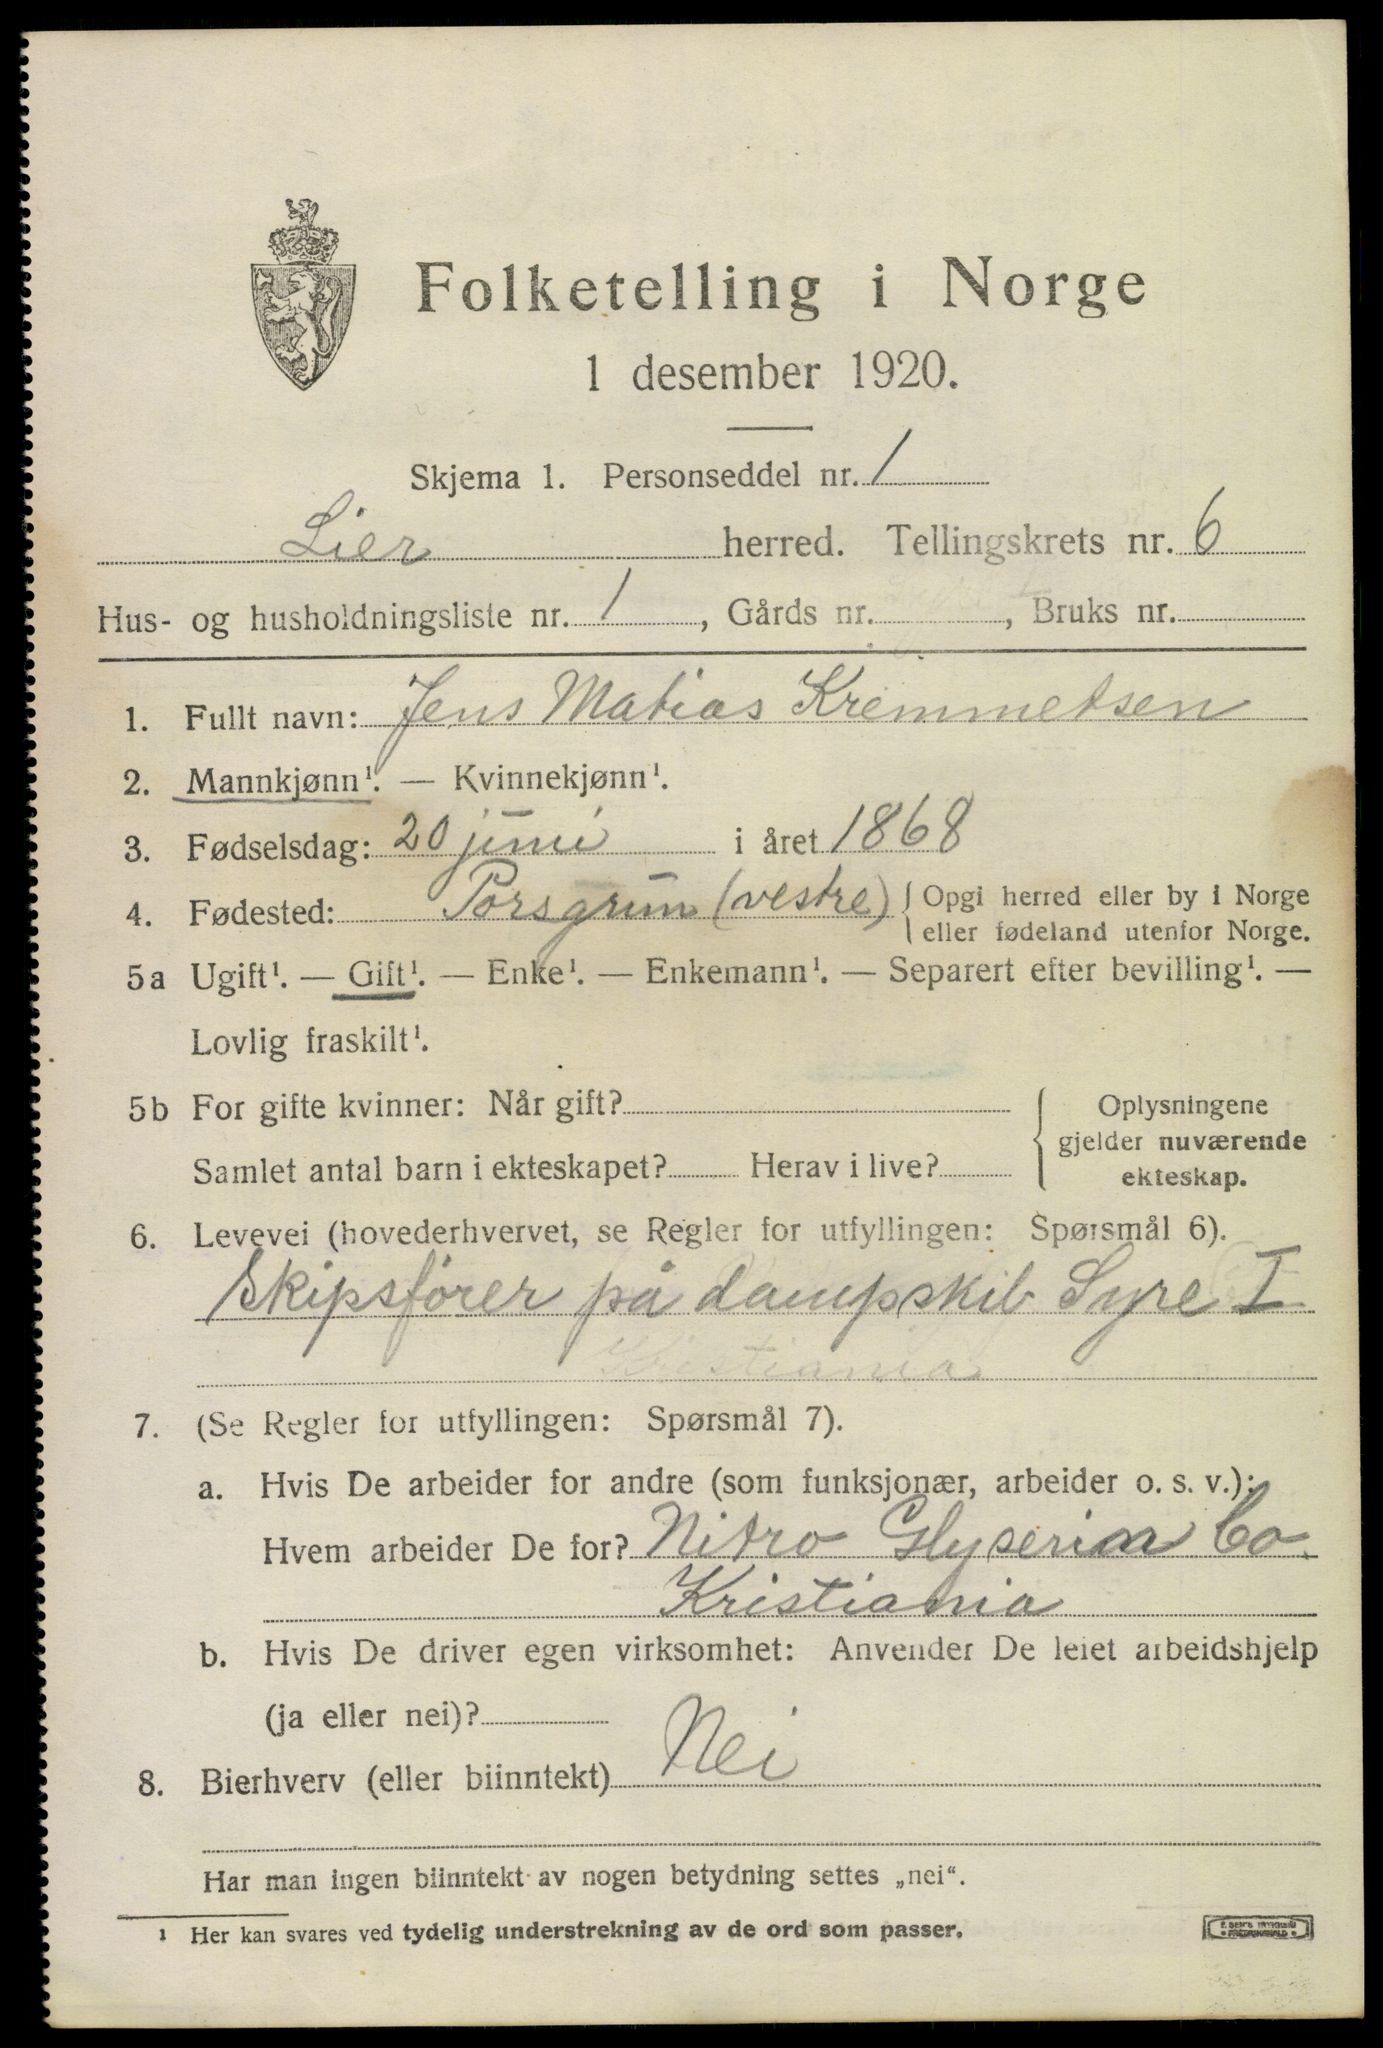 Folketelling i Norge
1 desember 1920.
Skjema 1. Personseddel nr. 1
Lier herred. Tellingskrets nr. 6
Hus- og husholdningsliste nr. 1, Gårds nr. , Bruks nr.
1. Fullt navn: Jens Matias Kremmetsen
2. Mannkjønn¹. — Kvinnekjønn¹.
3. Fødselsdag: 20 juni i året 1868
4. Fødested: Porsgrun (vestre) { Opgi herred eller by i Norge
eller fødeland utenfor Norge.
5a Ugift¹. — Gift¹. — Enke¹. — Enkemann¹. — Separert efter bevilling¹. —
Lovlig fraskilt¹.
5b For gifte kvinner: Når gift? { Oplysningene
gjelder nuværende
Samlet antal barn i ekteskapet? Herav i live? ekteskap.
6. Levevei (hovederhvervet, se Regler for utfyllingen: Spørsmål 6).
Skipsfører på dampskib Syre I
Kristiania
7. (Se Regler for utfyllingen: Spørsmål 7).
a. Hvis De arbeider for andre (som funksjonær, arbeider o. s. v.):
Hvem arbeider De for? Nitro Glyserin Co.
Kristiania
b. Hvis De driver egen virksomhet: Anvender De leiet arbeidshjelp
(ja eller nei)?
8. Bierhverv (eller biinntekt) Nei
Har man ingen biinntekt av nogen betydning settes „nei“.
¹ Her kan svares ved tydelig understrekning av de ord som passer.